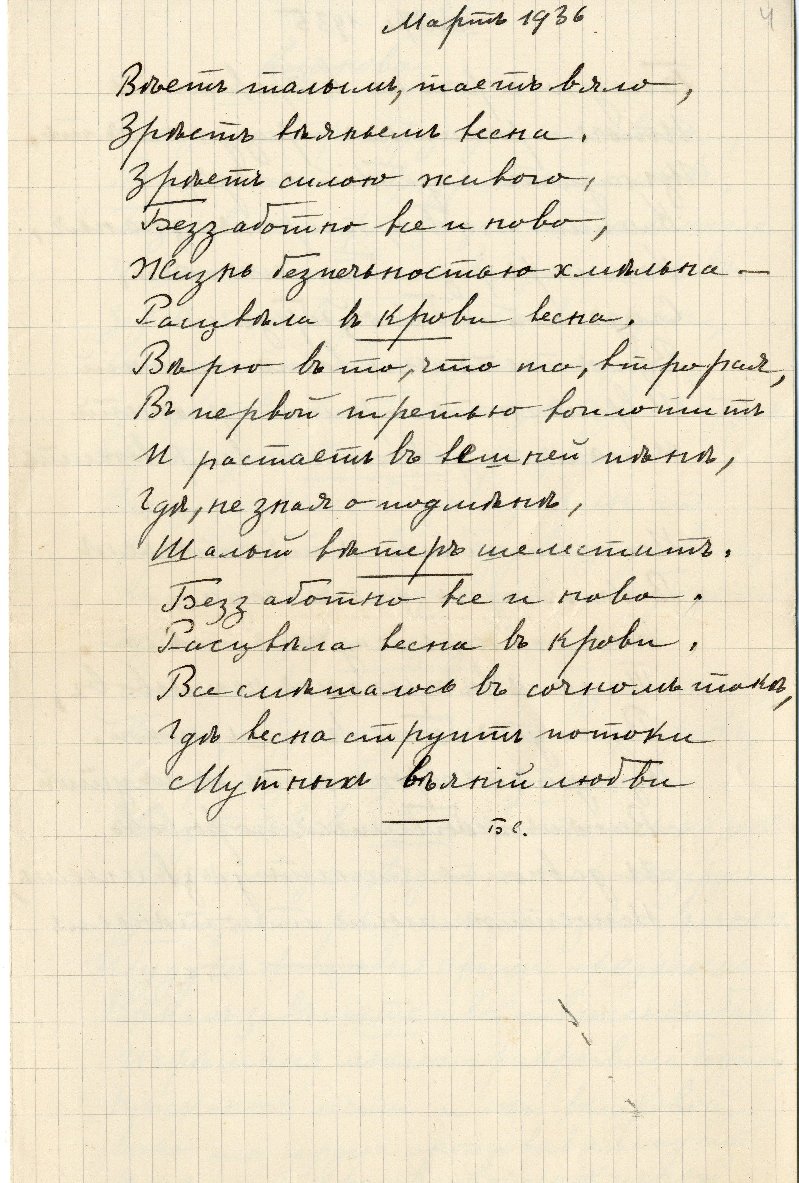 Мартъ 1936
4
Вѣетъ талымъ, таетъ вяло,
Зрѣетъ вѣяньемъ весна.
Зрѣетъ силою живого,
Беззаботно все и ново,
Жизнь безпечностью хмѣльна —
Расцвѣла въ крови весна.
Вѣрю въ то, что то,
Въ первой третью воплотитъ
И растаетъ въ вешней пѣнѣ,
Гдѣ, не зная о подмѣнѣ,
Шалый вѣтеръ шелеститъ.
Беззаботно все и ново.
Расцвѣла весна въ крови.
Все смѣшалось въ сочномъ токѣ,
Гдѣ весна струитъ потоки
Мутныхъ вѣяній любви
БС.